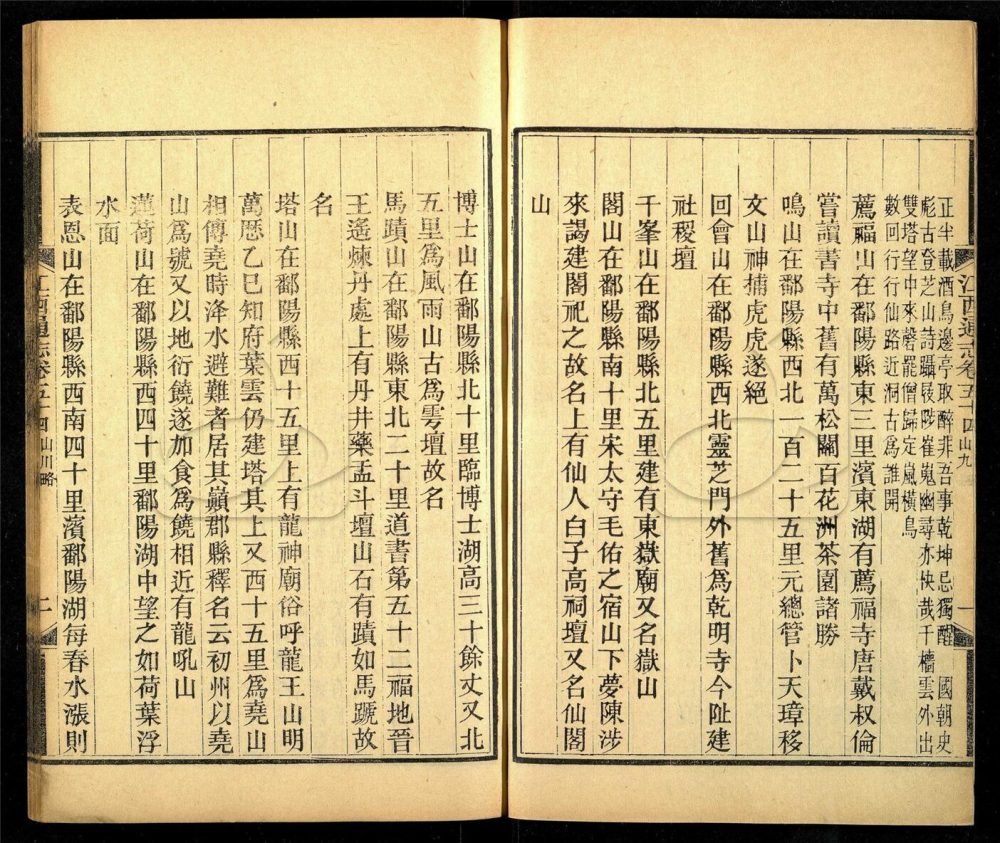 江西通志卷五十四 山九 一
正半載酒鳥邊亭取醉非吾事乾坤忌獨醒 國朝史
彪古登芝山詩躡屐陟崔嵬幽尋亦快哉千檣雲外出
雙塔望中來磬罷僧歸定嵐橫鳥
數回行行仙路近洞古為誰開
薦福山在鄱陽縣東三里濱東湖有薦福寺唐戴叔倫
嘗讀書寺中舊有萬松關百花洲茶園諸勝
鳴山在鄱陽縣西北一百二十五里元總管卜天璋移
文山神捕虎虎遂絕
回會山在鄱陽縣西北靈芝門外舊為乾明寺今阯建
社稷壇
千峯山在鄱陽縣北五里建有東嶽廟又名嶽山
閣山在鄱陽縣南十里宋太守毛佑之宿山下夢陳涉
來謁建閣祀之故名上有仙人白子高祠壇又名仙閣
山
博士山在鄱陽縣北十里臨博士湖高三十餘丈又北
五里為風雨山古為雩壇故名
馬蹟山在鄱陽縣東北二十里道書第五十二福地晉
王遙煉丹處上有丹井藥盂斗壇山石有蹟如馬蹏故
名
塔山在鄱陽縣西十五里上有龍神廟俗呼龍王山明
萬厯乙巳知府葉雲仍建塔其上又西十五里為堯山
相傳堯時洚水避難者居其巔郡縣釋名云初州以堯
山為號又以地衍饒遂加食為饒相近有龍吼山
蓮荷山在鄱陽縣西四十里鄱陽湖中望之如荷葉浮
水面
表恩山在鄱陽縣西南四十里濱鄱陽湖每春水漲則
江西通志卷五十四 山川略 二